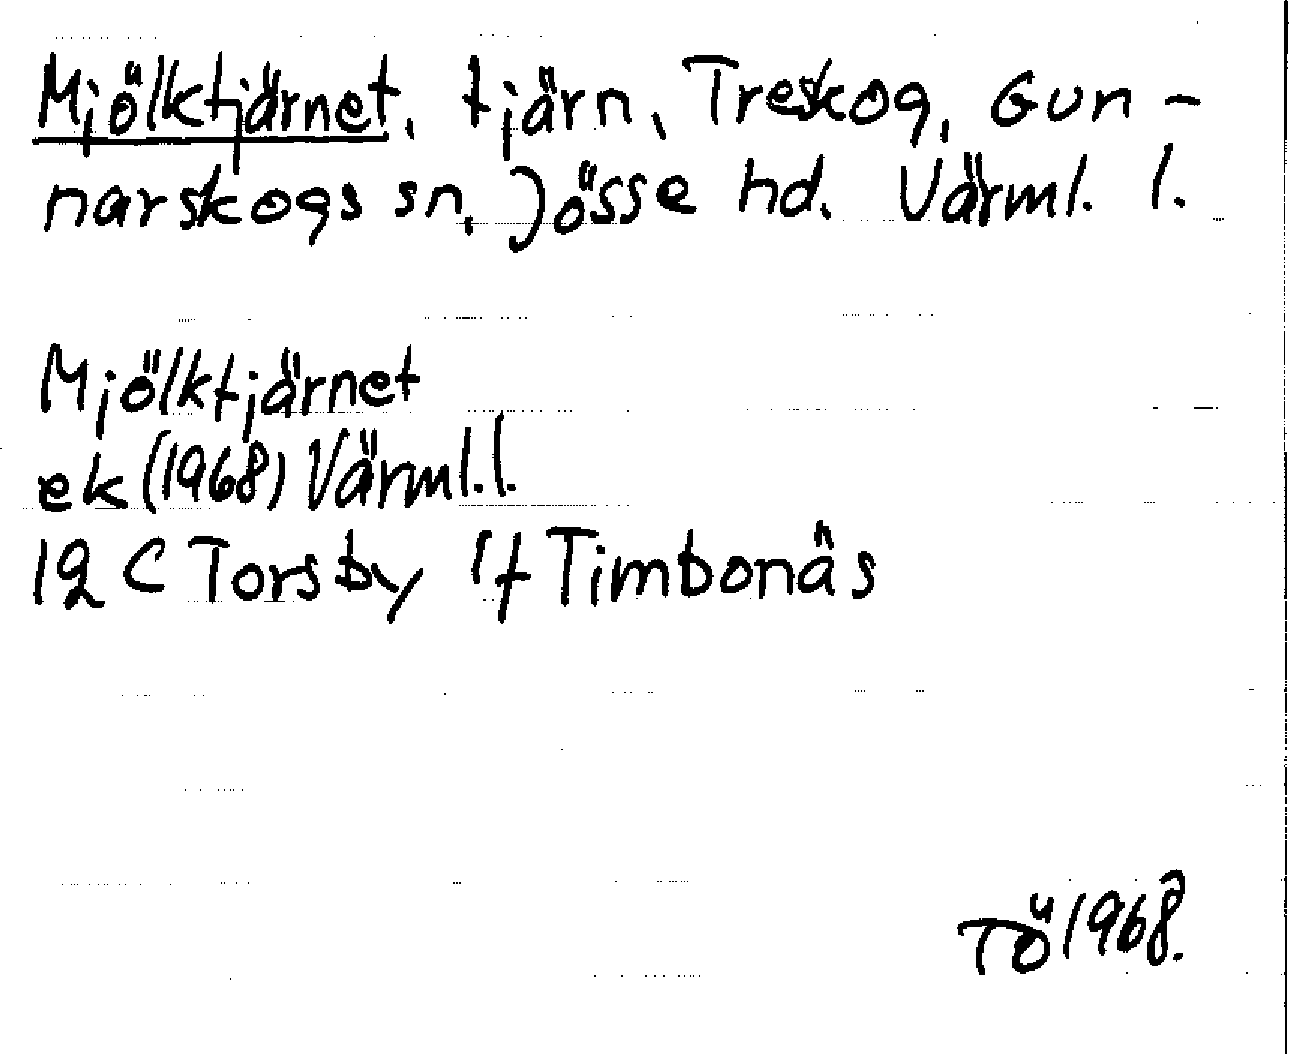 Mjölktjärnet, tjärn, Treskog, Gun-
narskogs sn, Jösse hd. Värml. l.
Mjölktjärnet
ek (1968) Värml. l.
12 C Torsby 1f Timbonäs
TÖ 1968.